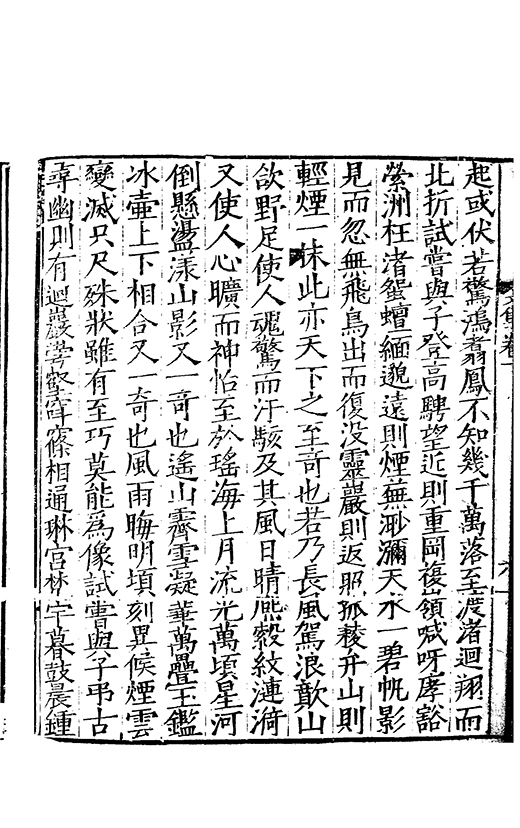 起或伏若驚鴻翥鳳不知幾千萬落至渡渚迴翔而
北折試嘗與子登高騁望近則重岡復嶺㗸呀庨豁
縈洲枉渚蜿蟺緬邈遠則煙蕪渺瀰天水一碧帆影
見而忽無飛鳥出而復没靈巖則返照孤稜开山則
輕煙一抹此亦天下之至奇也若乃長風駕浪歕山
欱野足使人魂驚而汗駭及其風日晴熈縠紋漣漪
又使人心曠而神怡至於瑤海上月流光萬頃星河
倒懸盪漾山影又一奇也遙山霽雪凝華萬疊玉鑑
冰壷上下相合又一奇也風雨晦明頃刻異候煙雲
變滅只尺殊狀雖有至巧莫能爲像試嘗與子弔古
尋幽則有迴巖
相通琳宫林宇暮鼓晨鍾
文集卷一
六